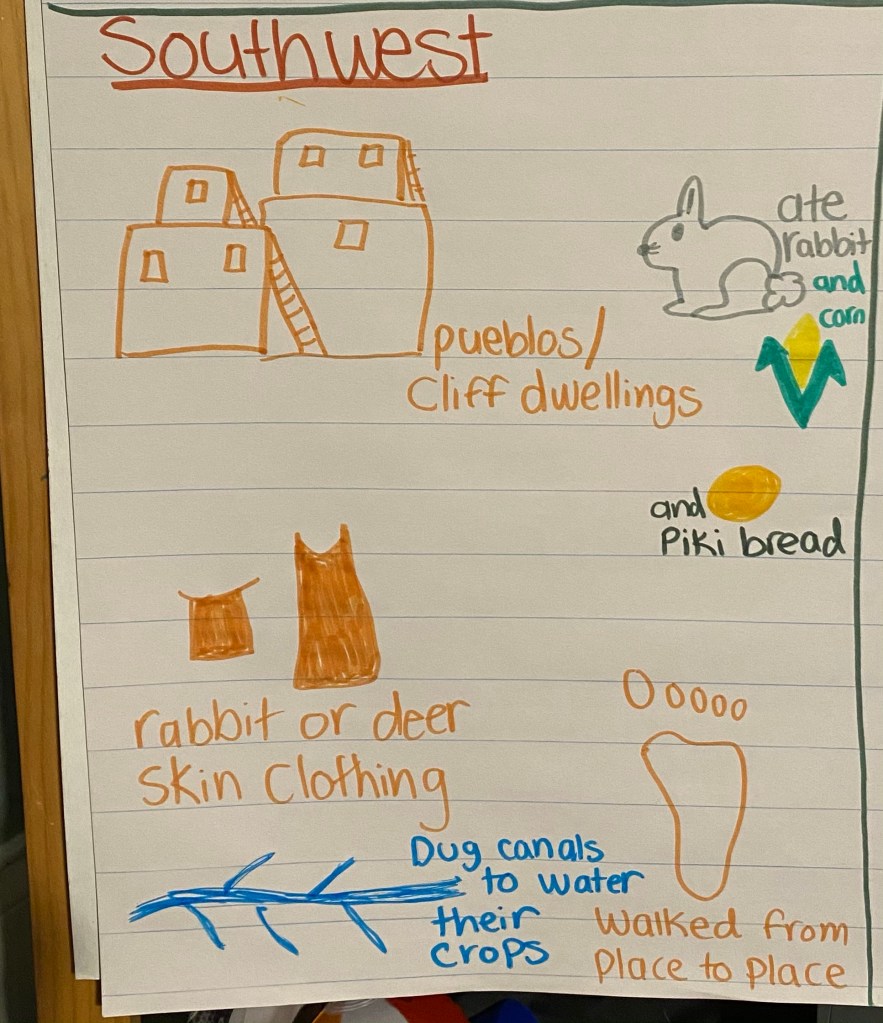 Southwest
ate
rabbit
and
corn
pueblos/
Cliff dwellings
and
Piki bread
rabbit or deer
Skin Clothing
Dug canals
to water
their
crops
Walked from
place to place